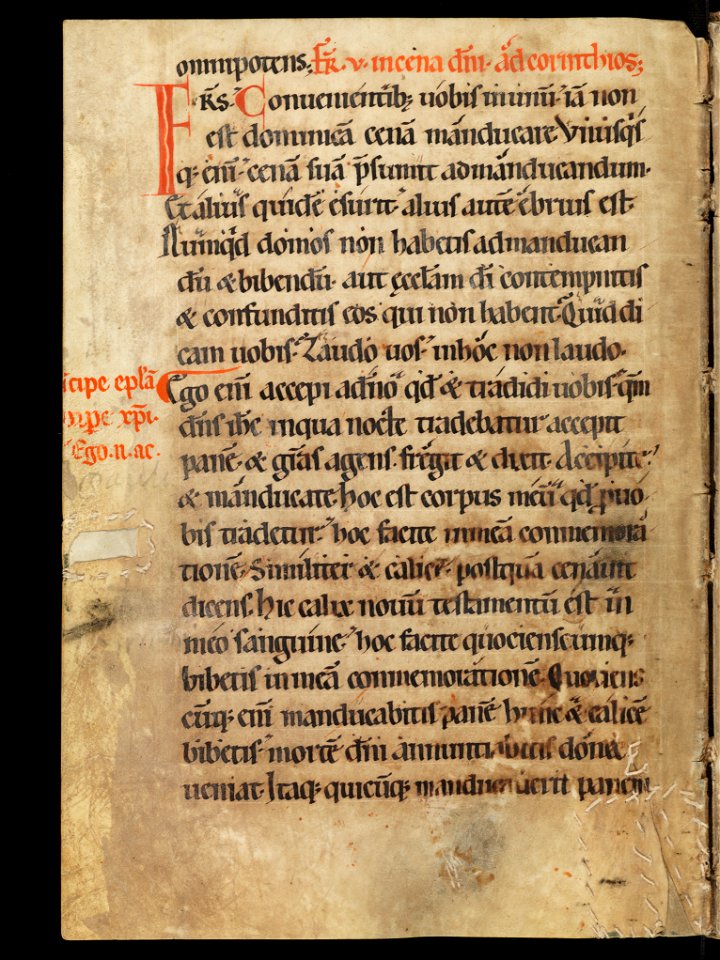 omnipotens; Fr̄. v. in cena dn̄i. ad corinthios;
Fr̄s. Conuenientib; uobis in unū. iā non
est dominicā cenā manducare. Vnusq́s
q. eni. cenā suā p̄sumit ad manducandum.
Et alius quidē esurit. alius autē ebrius est.
Nunqd domos non habetis ad manducan
dū & bibendū. aut ęcclam di contempnitis
& confunditis eos qui non habent. Quid di
cam uobis. Laudo uos. in hoc non laudo.
Ego eni accepi a dn̄o qd & tradidi uobis. qm
dn̄s ihc in qua nocte tradebatur accepit
panē. & gr̄as agens. fregit & dixit. Accipite.
& manducate. hoc est corpus meū qd p uo
bis tradetur. hoc facite in meā commemora
tionē. Similiter & calicē. postquā cenauit
dicens. hic calix nouū testamentū est in
meo sanguine. hoc facite quocienscumq;
bibetis in meā commemorationē. Quociens
cūq; eni manducabitis panē hunc & calicē
bibetis. mortē dn̄i annuntiabitis donec
ueniat. Itaq; quicūq; manducauerit panem
cipe eplā
xp̄i.
Ego. n. ac.